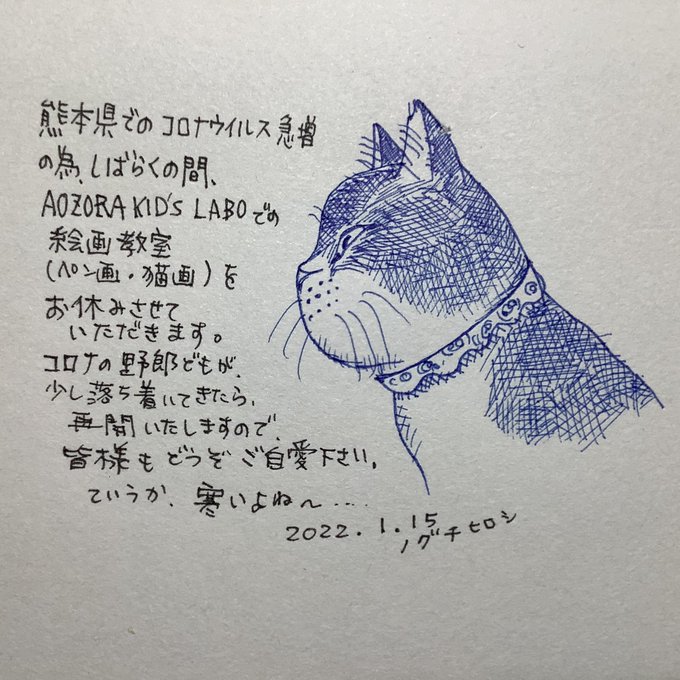 熊本県でのコロナウイルス急増
の為、しばらくの間、
AOZORA KID'S LABOでの
絵画教室
(ペン画・猫画)を
お休みさせて
いただきます。
コロナの野郎どもが、
少し落ち着いてきたら、
再開いたしますので、
皆様もどうぞご自愛下さい。
ていうか、寒いよね〜....
2022.1.15
ノグチヒロシ